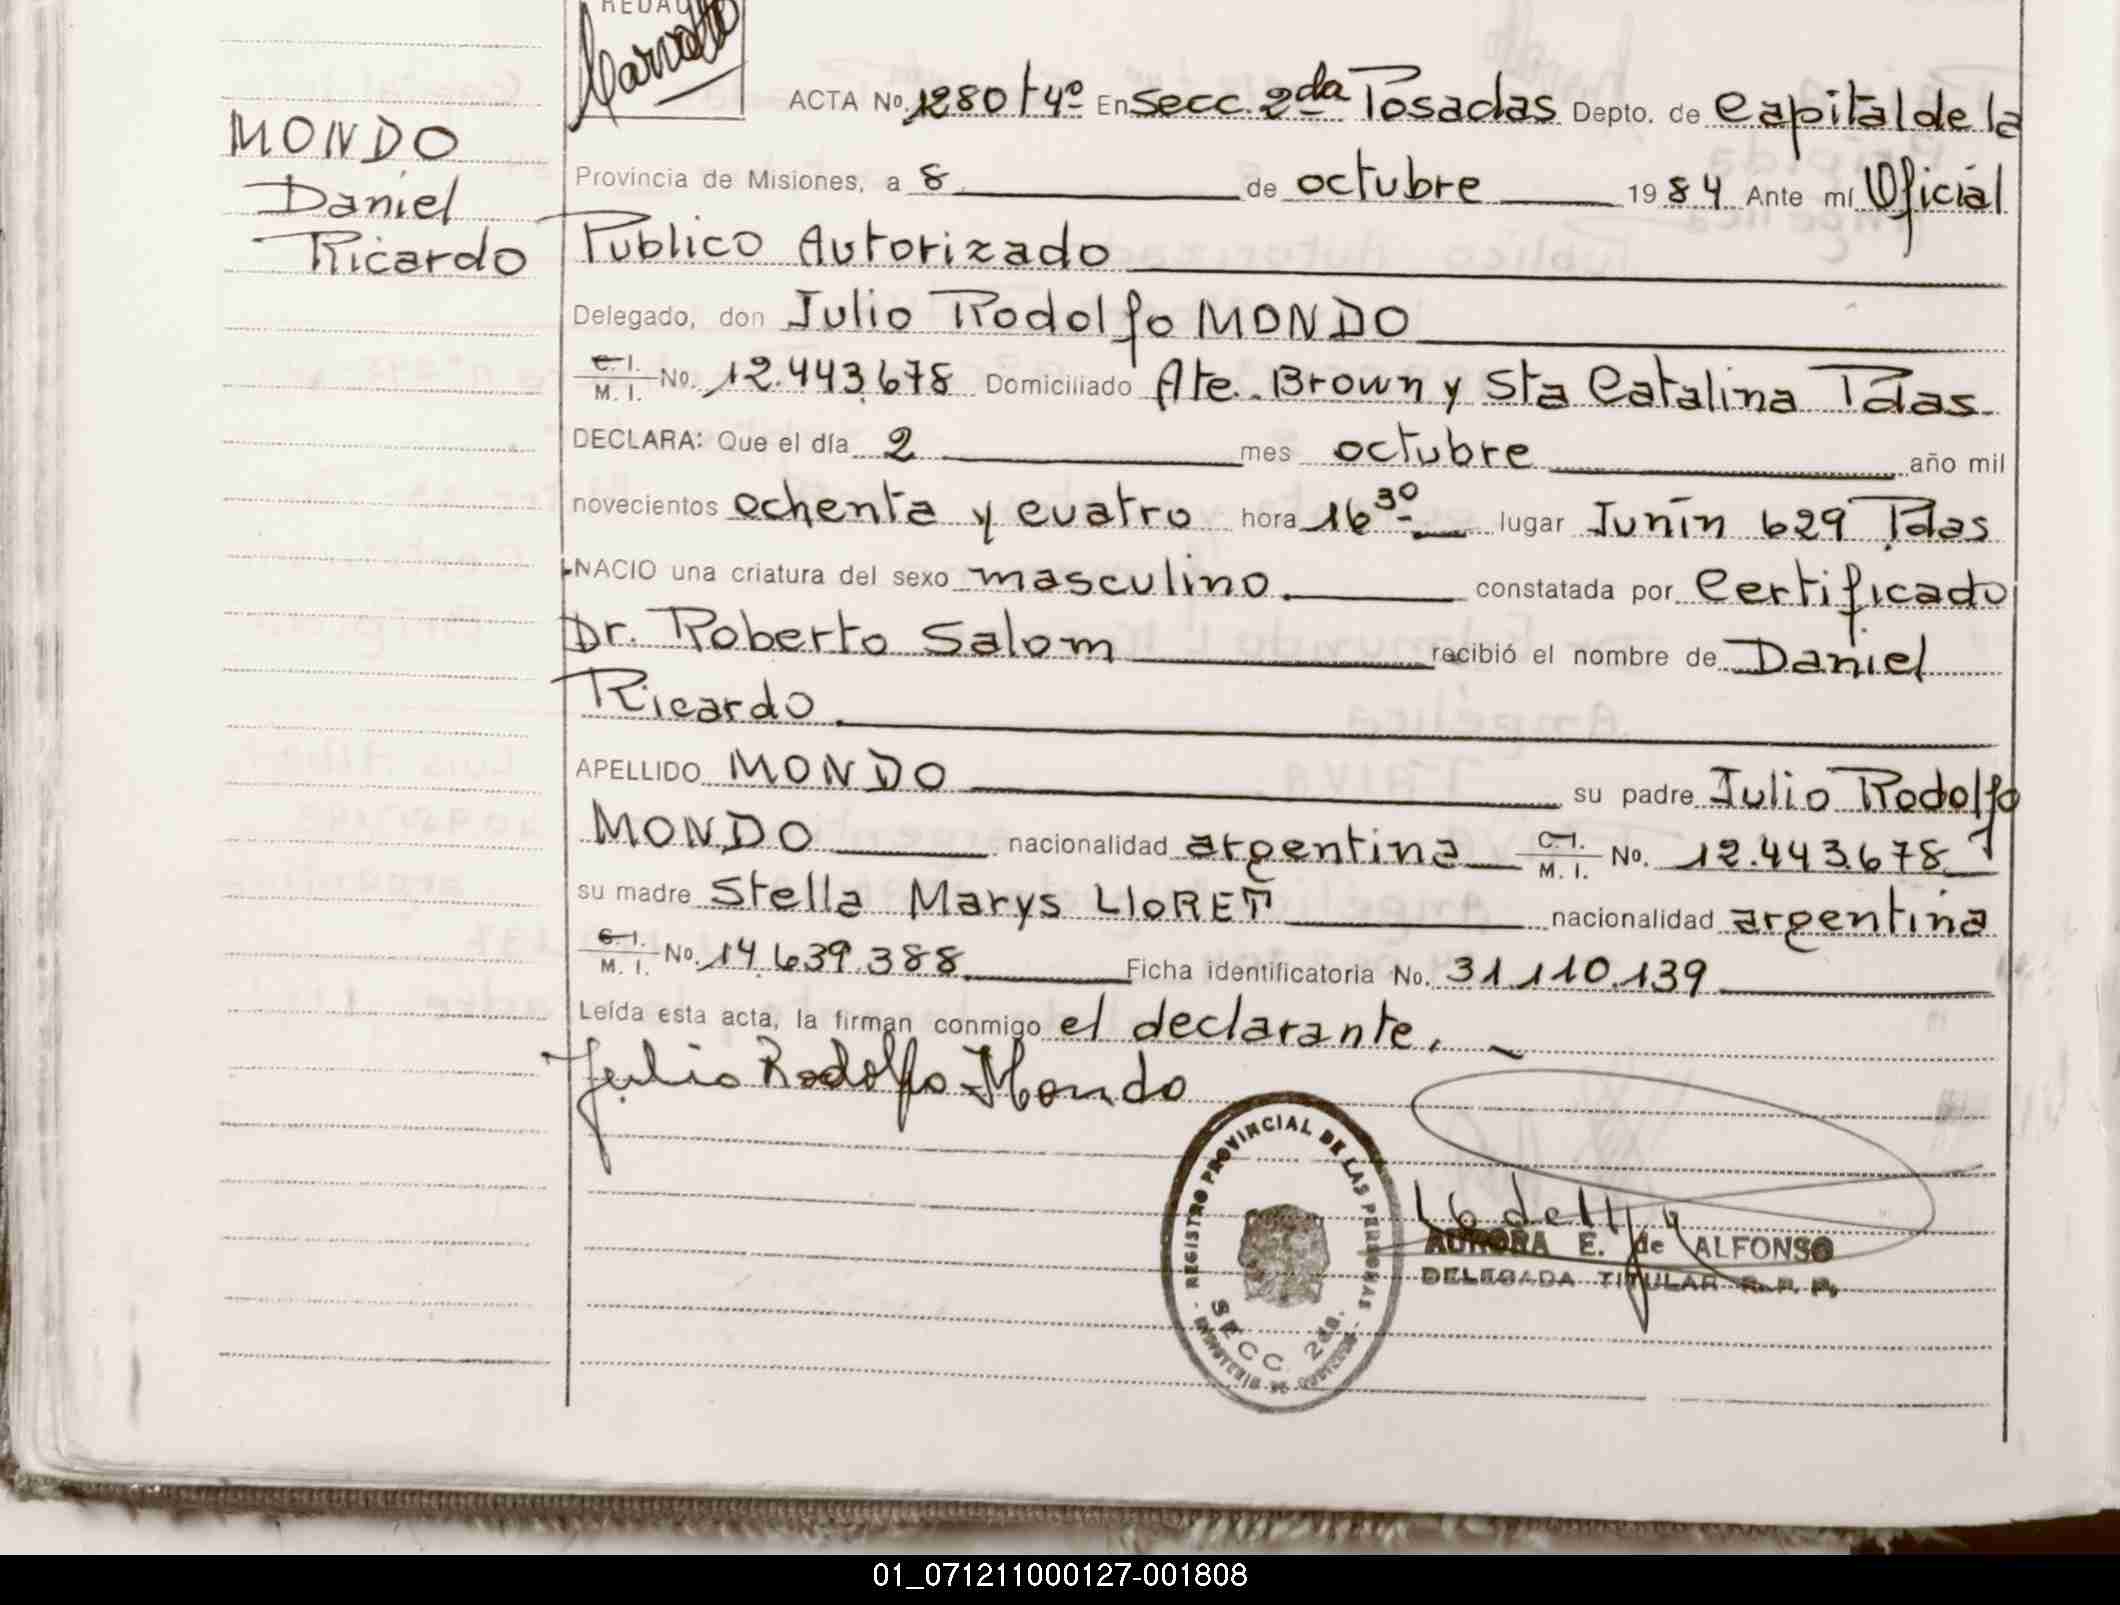 Carvallo
ACTA No. 1280 T 4º En Secc. 2da Posadas Depto. de Capital de la
MONDO
Daniel
Ricardo
Provincia de Misiones, a 8 de octubre 1984 Ante mí Oficial
Publico Autorizado
Delegado, don Julio Rodolfo MONDO
C. I.
M. I. No. 12.443.678 Domiciliado Ate. Brown y Sta Catalina Pdas.
DECLARA: Que el día 2 mes octubre año mil
novecientos ochenta y cuatro hora 16 30 lugar Junín 629 Pdas
NACIO una criatura del sexo masculino. constatada por Certificado
Dr. Roberto Salom recibió el nombre de Daniel
Ricardo
APELLIDO MONDO su padre Julio Rodolfo
MONDO nacionalidad argentina C. I.
M. I. No. 12.443.678
su madre Stella Marys LloRET nacionalidad argentina
C. I.
M. I. No. 14.639.388 Ficha identificatoria No. 31.110.139
Leída esta acta, la firman conmigo el declarante.
Julio Rodolfo Mondo
REGISTRO PROVINCIAL DE LAS PERSONAS
SECC. 2da.
AURORA E. de ALFONSO
DELEGADA TITULAR R. P. P.
01_071211000127-001808